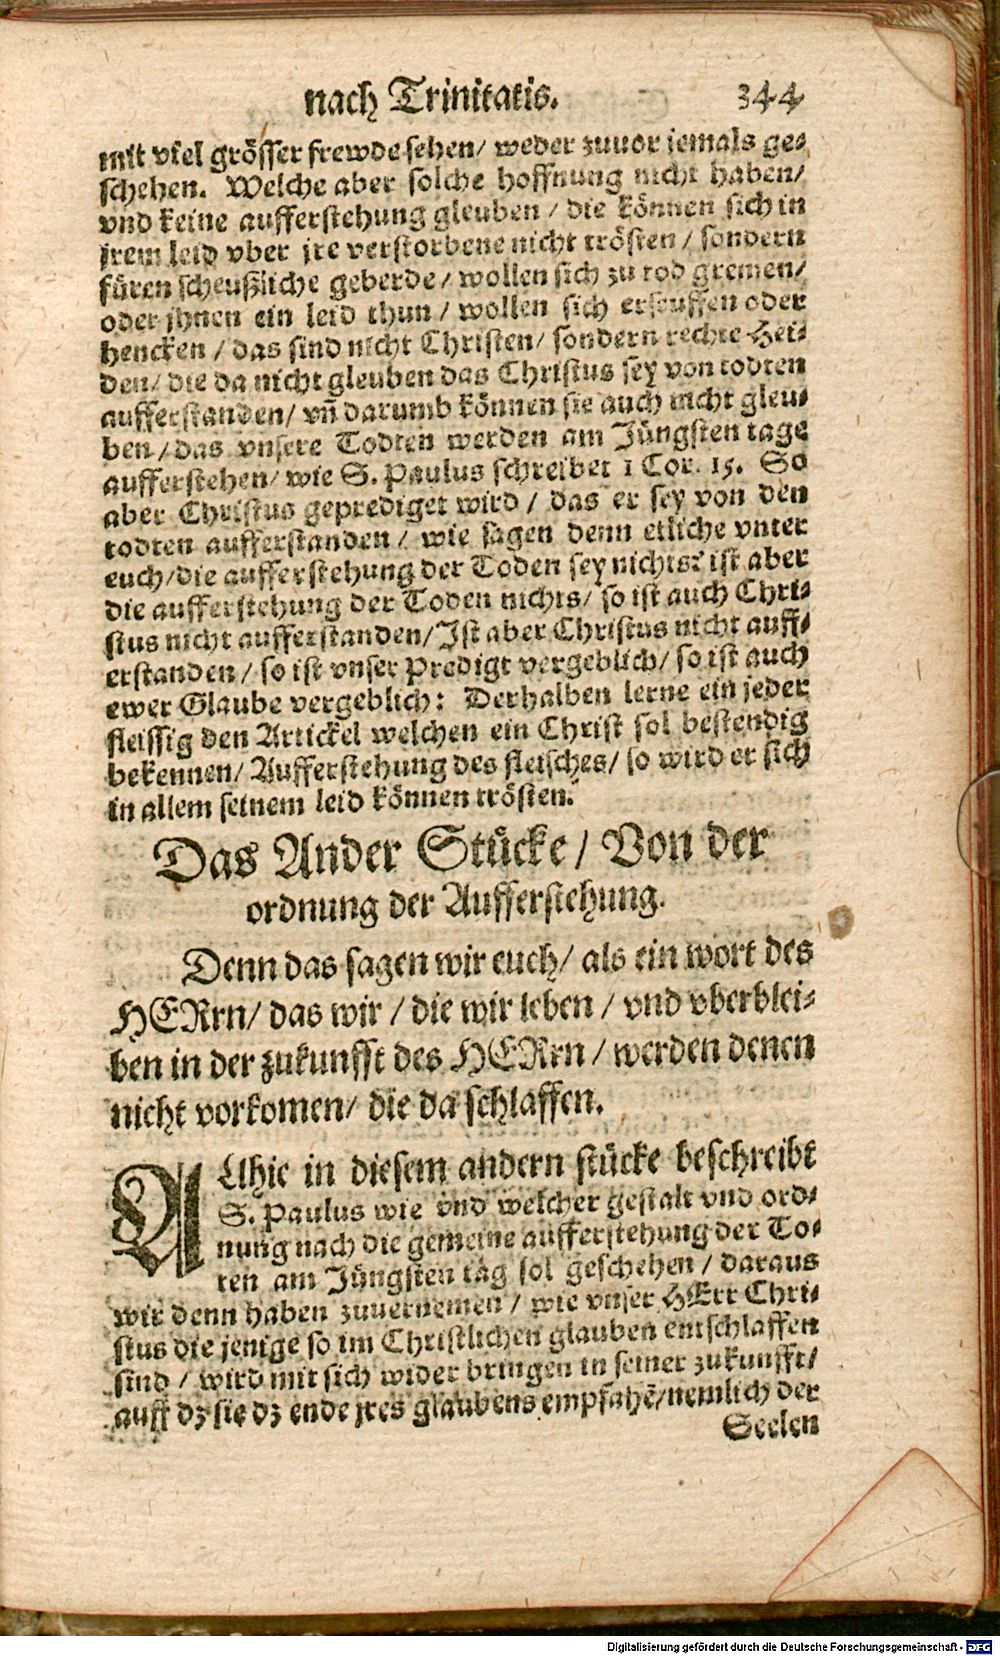 nach Trinitatis. 344
mit viel grösser frewde sehen/ weder zuuor jemals ge-
schehen. Welche aber solche hoffnung nicht haben/
vnd keine aufferstehung gleuben / die können sich in
jrem leid vber jre verstorbene nicht trösten / sondern
füren scheußliche geberde / wollen sich zu tod gremen/
oder jhnen ein leid thun / wollen sich erseuffen oder
hencken / das sind nicht Christen/ sondern rechte Hei-
den/ die da nicht gleuben das Christus sey von todten
aufferstanden/ vñ darumb können sie auch nicht gleu-
ben / das vnsere Todten werden am Jüngsten tage
aufferstehen/ wie S. Paulus schreibet 1 Cor. 15. So
aber Christus geprediget wird / das er sey von den
todten aufferstanden / wie sagen denn etliche vnter
euch/die aufferstehung der Toden sey nichts? ist aber
die aufferstehung der Toden nichts/ so ist auch Chri-
stus nicht aufferstanden/Ist aber Christus nicht auff-
erstanden / so ist vnser Predigt vergeblich/ so ist auch
ewer Glaube vergeblich: Derhalben lerne ein jeder
fleissig den Artickel welchen ein Christ sol bestendig
bekennen/ Aufferstehung des fleisches/ so wird er sich
in allem seinem leid können trösten.
Das Ander Stücke / Von der
ordnung der Aufferstehung.
Denn das sagen wir euch/ als ein wort des
HERrn/ das wir / die wir leben / vnd vberblei-
ben in der zukunfft des HERrn / werden denen
nicht vorkomen/ die da schlaffen.
ALhie in diesem andern stücke beschreibt
S. Paulus wie vnd welcher gestalt vnd ord-
nung nach die gemeine aufferstehung der To-
ten am Jüngsten tag sol geschehen / daraus
wir denn haben zuuernemen / wie vnser HErr Chri-
stus die jenige so im Christlichen glauben entschlaffen
sind / wird mit sich wider bringen in seiner zukunfft/
auff dz sie dz ende jres glaubens empfahē/nemlich der
Seelen
Digitalisierung gefördert durch die Deutsche Forschungsgemeinschaft - DFG